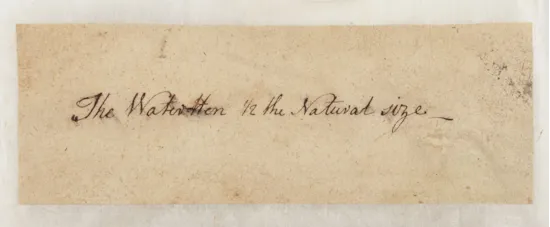 The Water Hen ½ the Natural size